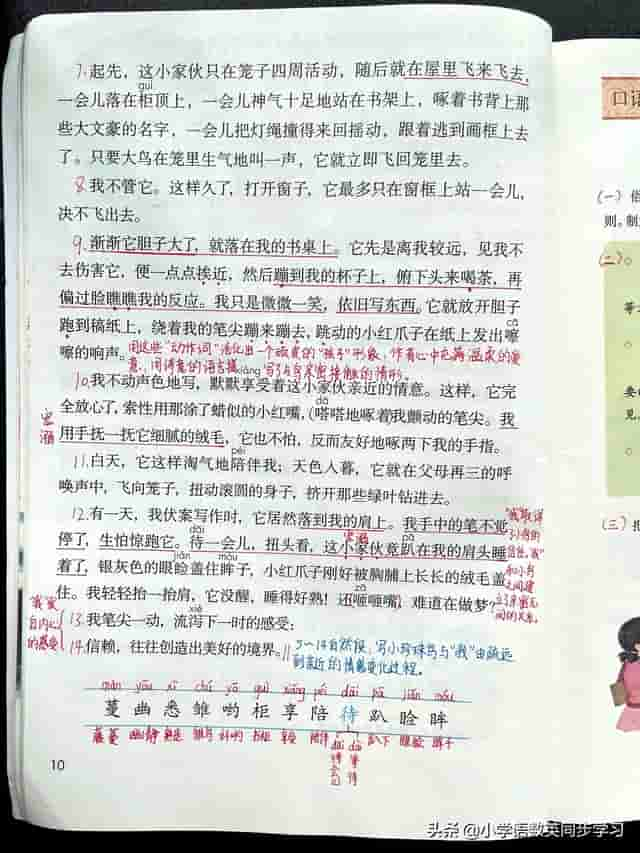 7.起先，这小家伙只在笼子四周活动，随后就在屋里飞来飞去，
guì
一会儿落在柜顶上，一会儿神气十足地站在书架上，啄着书背上那
些大文豪的名字，一会儿把灯绳撞得来回摇动，跟着逃到画框上去
了。只要大鸟在笼里生气地叫一声，它就立即飞回笼里去。
8.我不管它。这样久了，打开窗子，它最多只在窗框上站一会儿，
决不飞出去。
9.渐渐它胆子大了，就落在我的书桌上。它先是离我较远，见我不
去伤害它，便一点点挨近，然后蹦到我的杯子上，俯下头来喝茶，再
偏过脸瞧瞧我的反应。我只是微微一笑，依旧写东西。它就放开胆子
跑到稿纸上，绕着我的笔尖蹦来蹦去，跳动的小红爪子在纸上发出嚓
cā
嚓的响声。
xiǎng
10.我不动声色地写，默默享受着这小家伙亲近的情意。这样，它完
dā
全放心了，索性用那涂了蜡似的小红嘴，嗒嗒地啄着我颤动的笔尖。我
用手抚一抚它细腻的绒毛，它也不怕，反而友好地啄两下我的手指。
péi
11.白天，它这样淘气地陪伴我；天色入暮，它就在父母再三的呼
唤声中，飞向笼子，扭动滚圆的身子，挤开那些绿叶钻进去。
12.有一天，我伏案写作时，它居然落到我的肩上。我手中的笔不觉
dāi
停了，生怕惊跑它。待一会儿，扭头看，这小家伙竟趴在我的肩头睡
jiǎn móu
着了，银灰色的眼睑盖住眸子，小红爪子刚好被胸脯上长长的绒毛盖
住。我轻轻抬一抬肩，它没醒，睡得好熟！还咂咂嘴，难道在做梦？
xiè
13.我笔尖一动，流泻下一时的感受：
14.信赖，往往创造出美好的境界。
5～14自然段，写小珍珠鸟与“我”由疏远
到亲近的情感变化过程。
màn yōu xī chú yō guì xiǎng péi dāi pā jiǎn móu
蔓 幽 悉 雏 哟 柜 享 陪 待 趴 睑 眸
藤蔓 幽静 熟悉 雏鸟 书柜 享受 陪伴 趴下 眼睑 眸子
10
口语
（一）
则。制
（二）
（三）
头条 @小学语数英同步学习